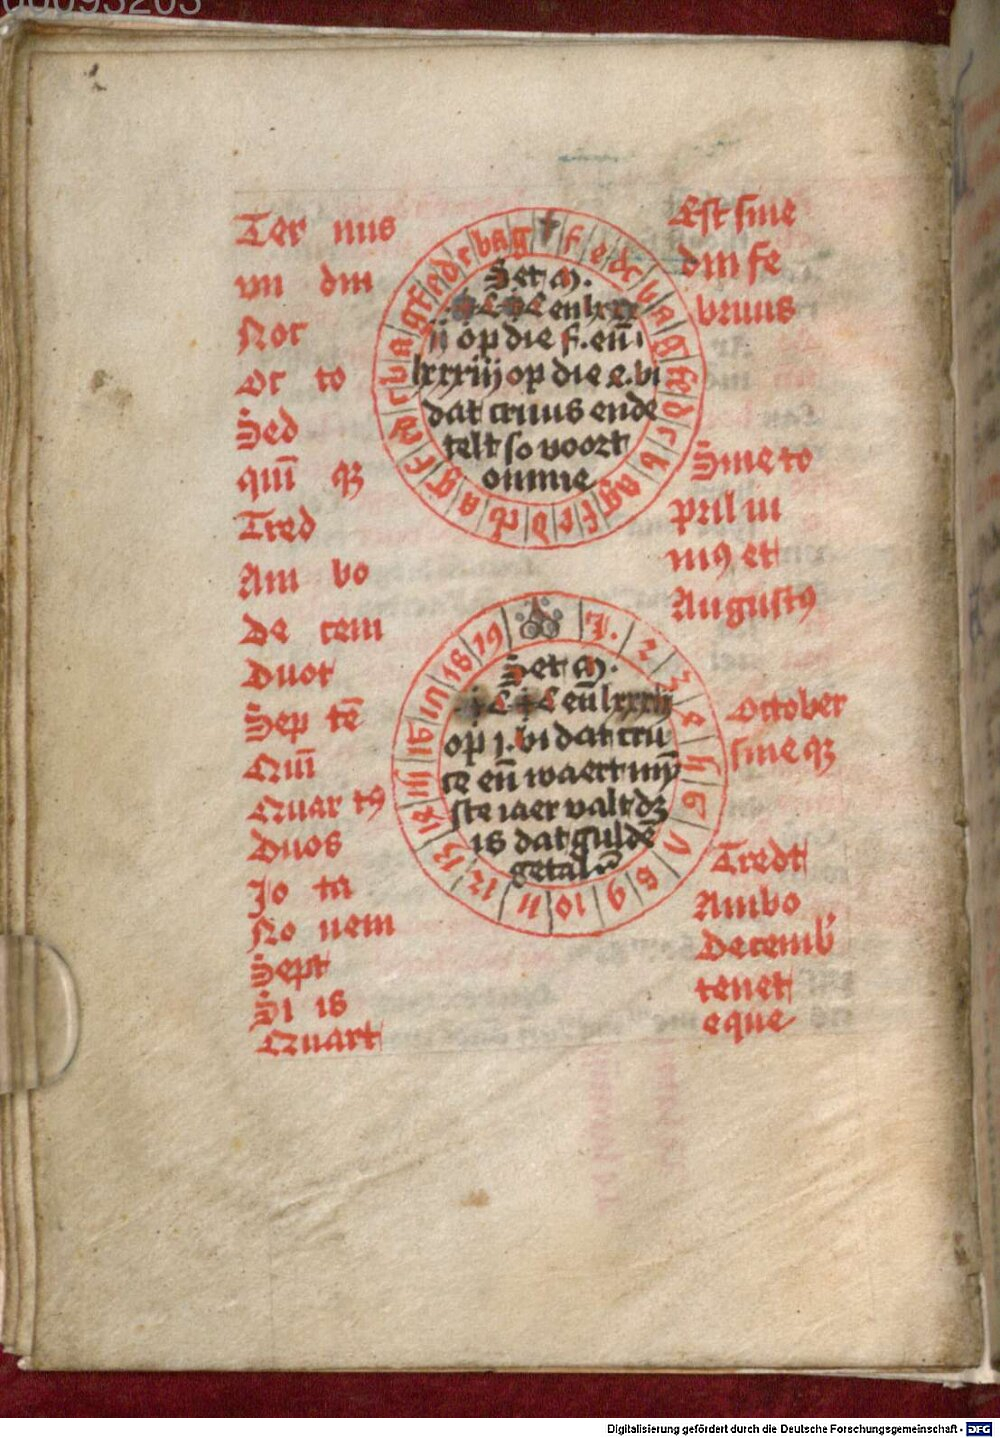 00093203
Ter nus
vn din
Nor
Oc to
Sed
quī qꝫ
Tred
Am bo
De cem
Duot
Sep tē
Quī
Quar tꝰ
Duos
Jo ta
No nem
Sept
Si is
Quart
f e d c b a g f e d c b a g f e d c b a g f e d c b a g
Set M.
en lxxx
ij op die f. eñ
lxxxiij op die e. bi
dat cruus ende
telt so voort
omme
1. 2 3 8 19
Set M.
eñ lxxxiij
op j. bi dat cru
ce eñ waert
ste iaer valt dꝫ
is dat guldē
getal
Est sine
din fe
bruus
Sine to
pril iu
niꝰ et
Augustꝰ
October
sine qꝫ
Tredt
Ambo
Decemb
tenet
eque
Digitalisierung gefördert durch die Deutsche Forschungsgemeinschaft - DFG